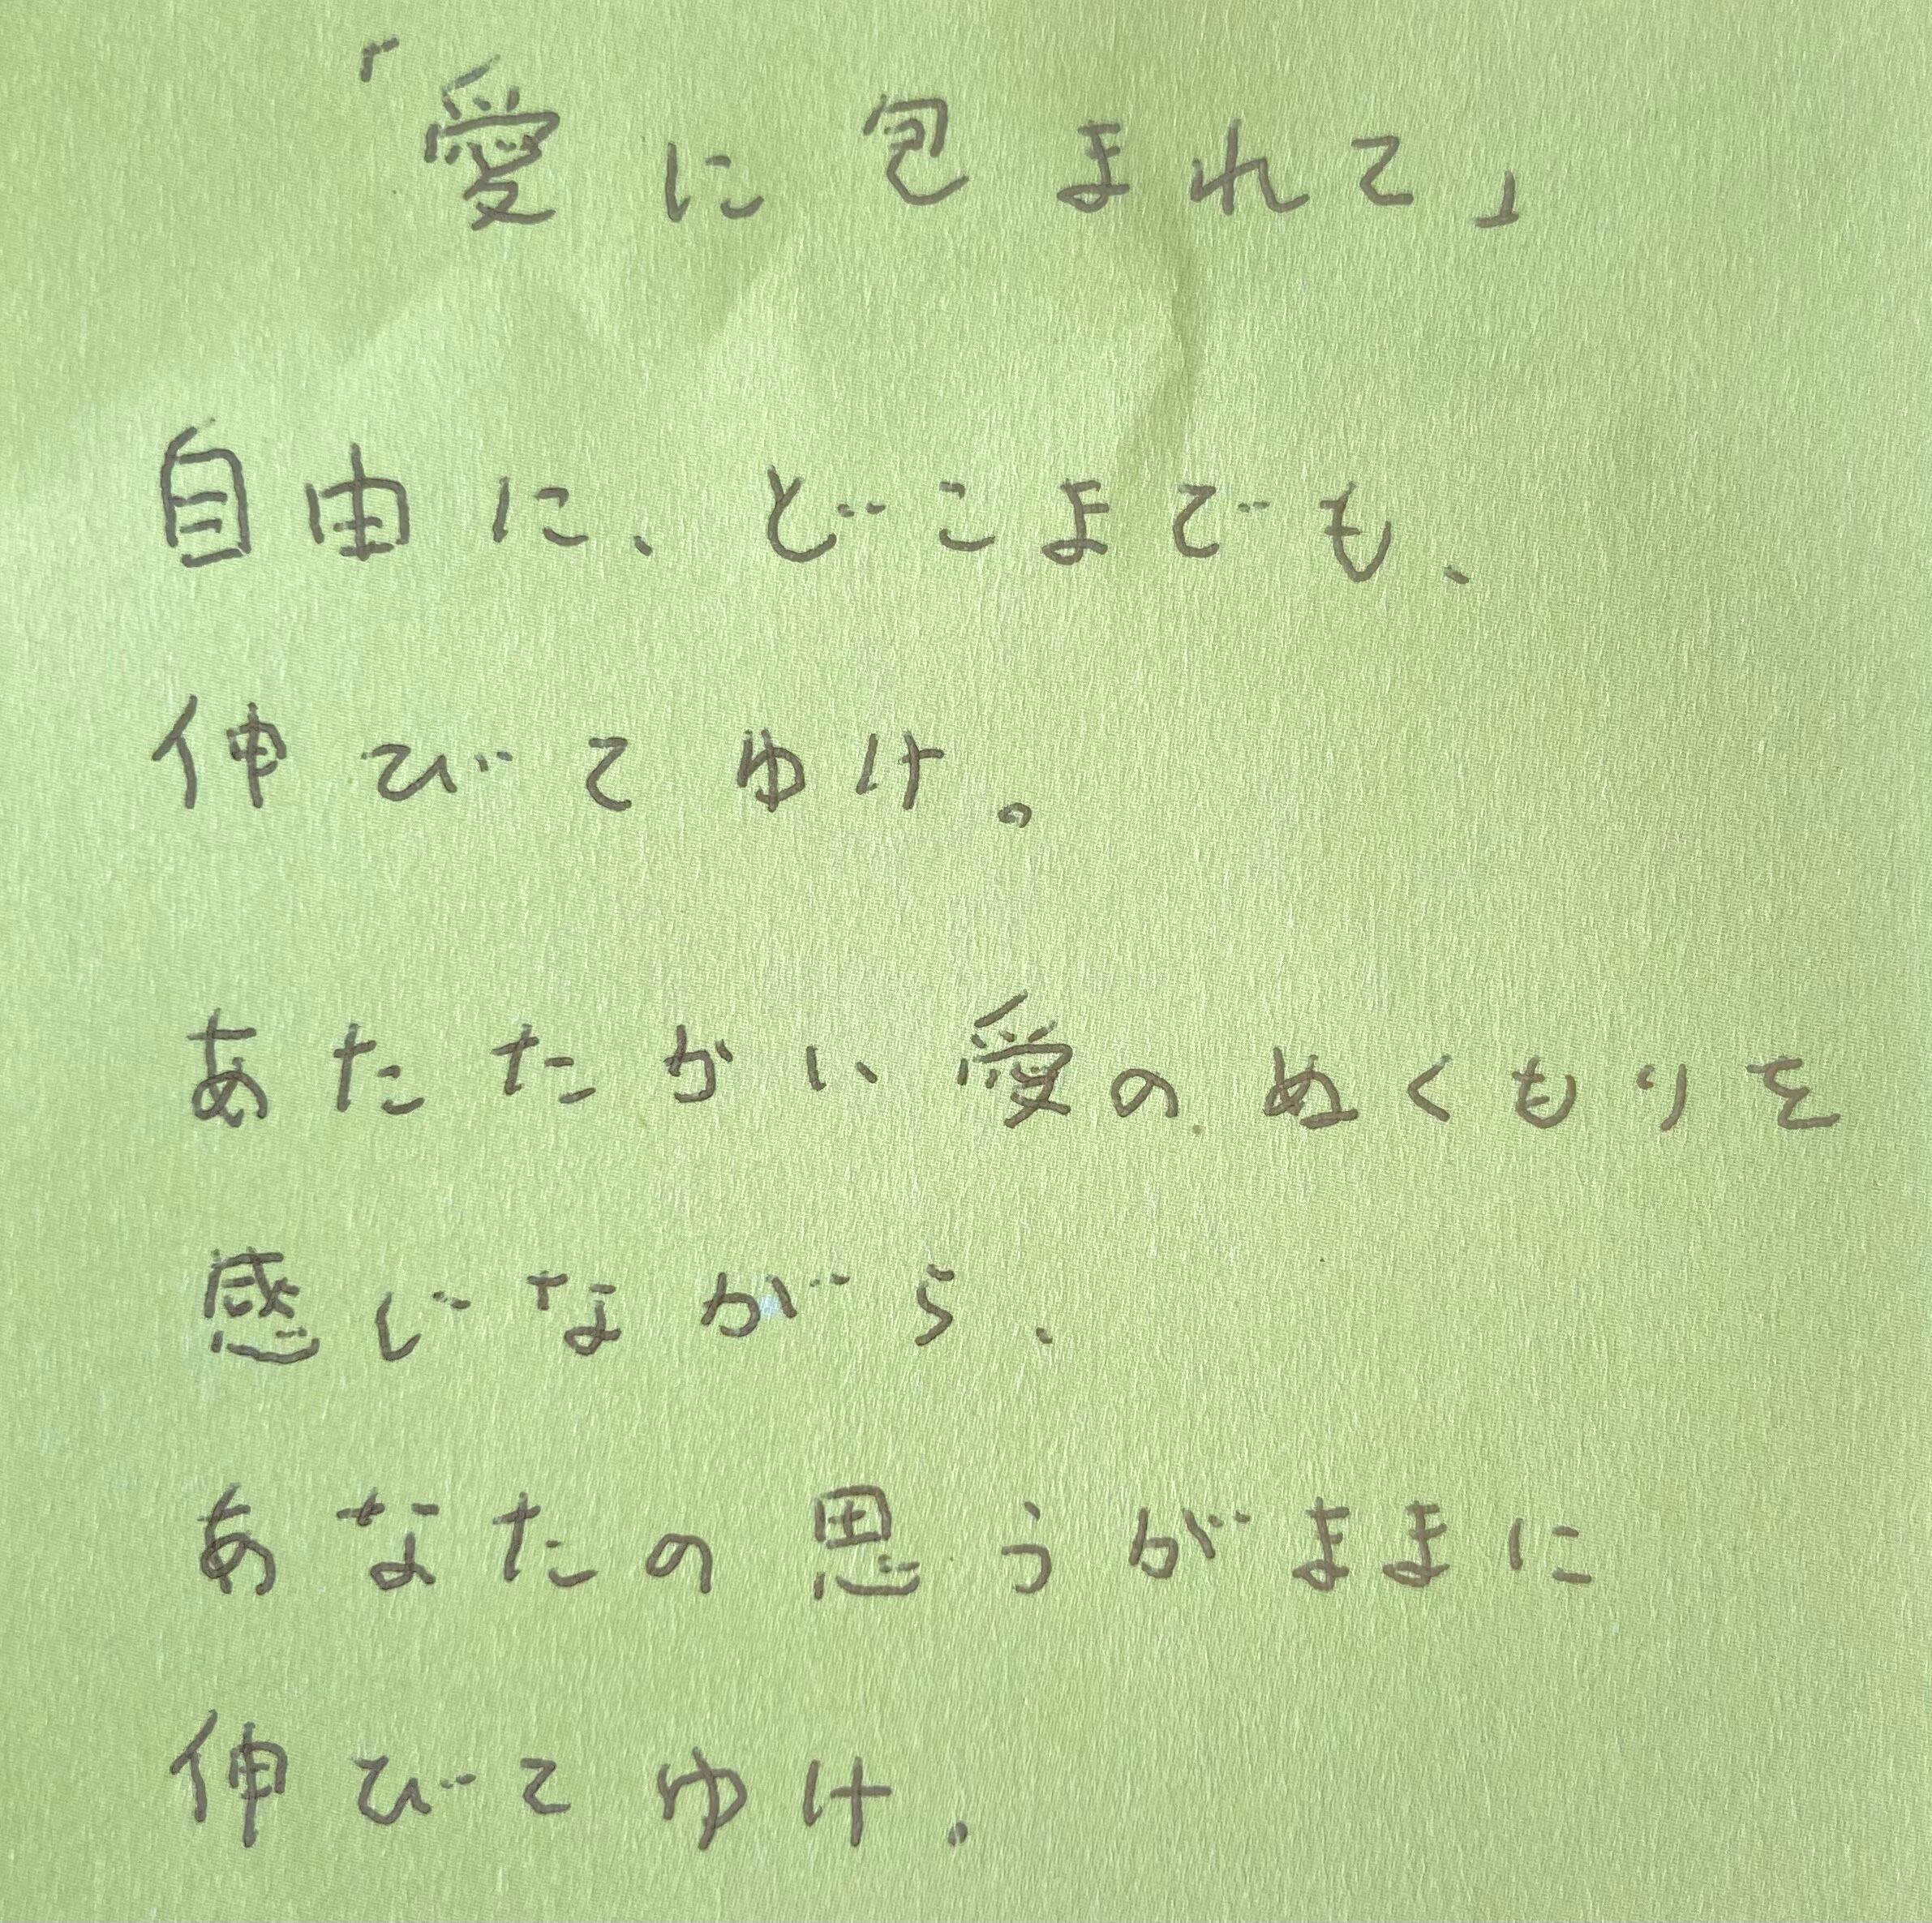 「愛に包まれて」
自由に、どこまでも、
伸びてゆけ。
あたたかい愛のぬくもりを
感じながら、
あなたの思うがままに
伸びてゆけ。